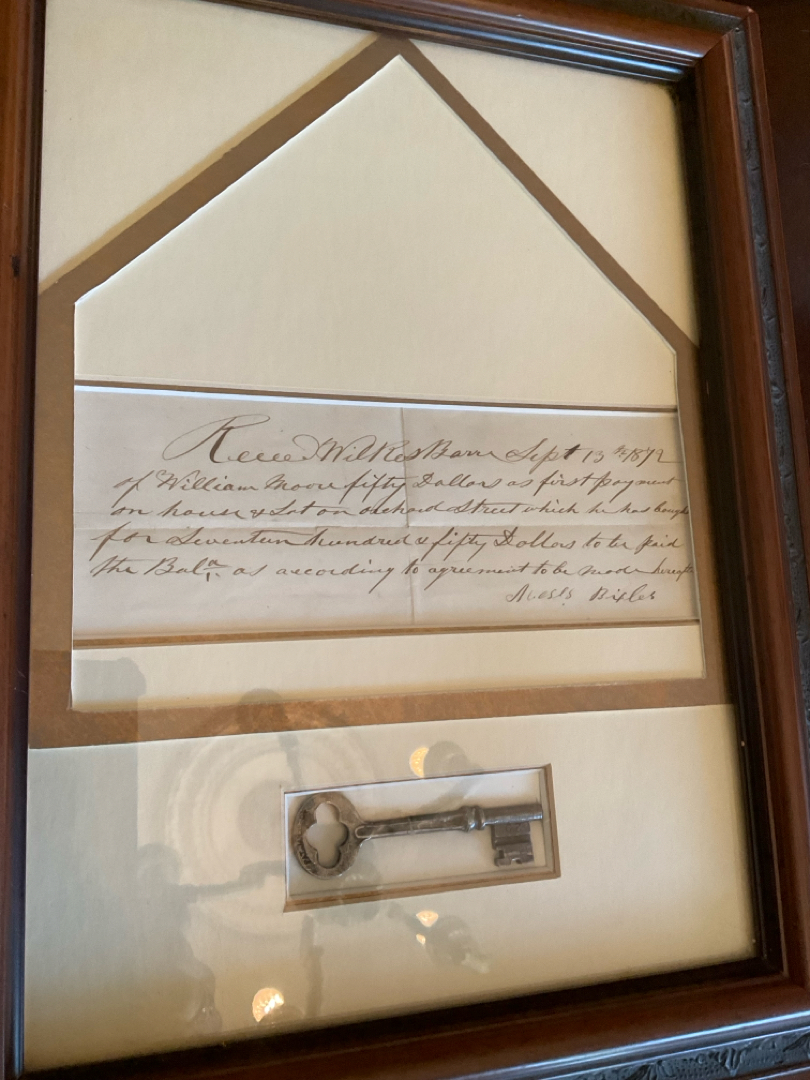 Recd WilkesBarre Sept 13th 1872
of William Moore fifty Dollars as first payment
on house & Lot on orchard Street which he has bough
for Seventeen hundred & fifty Dollars to be paid
the Bala. as according to agreement to be made hereaft
Bixler